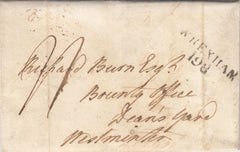 Richard Burn Esqr
Bounty Office
Dean's Yard
Westminster
WREXHAM
198